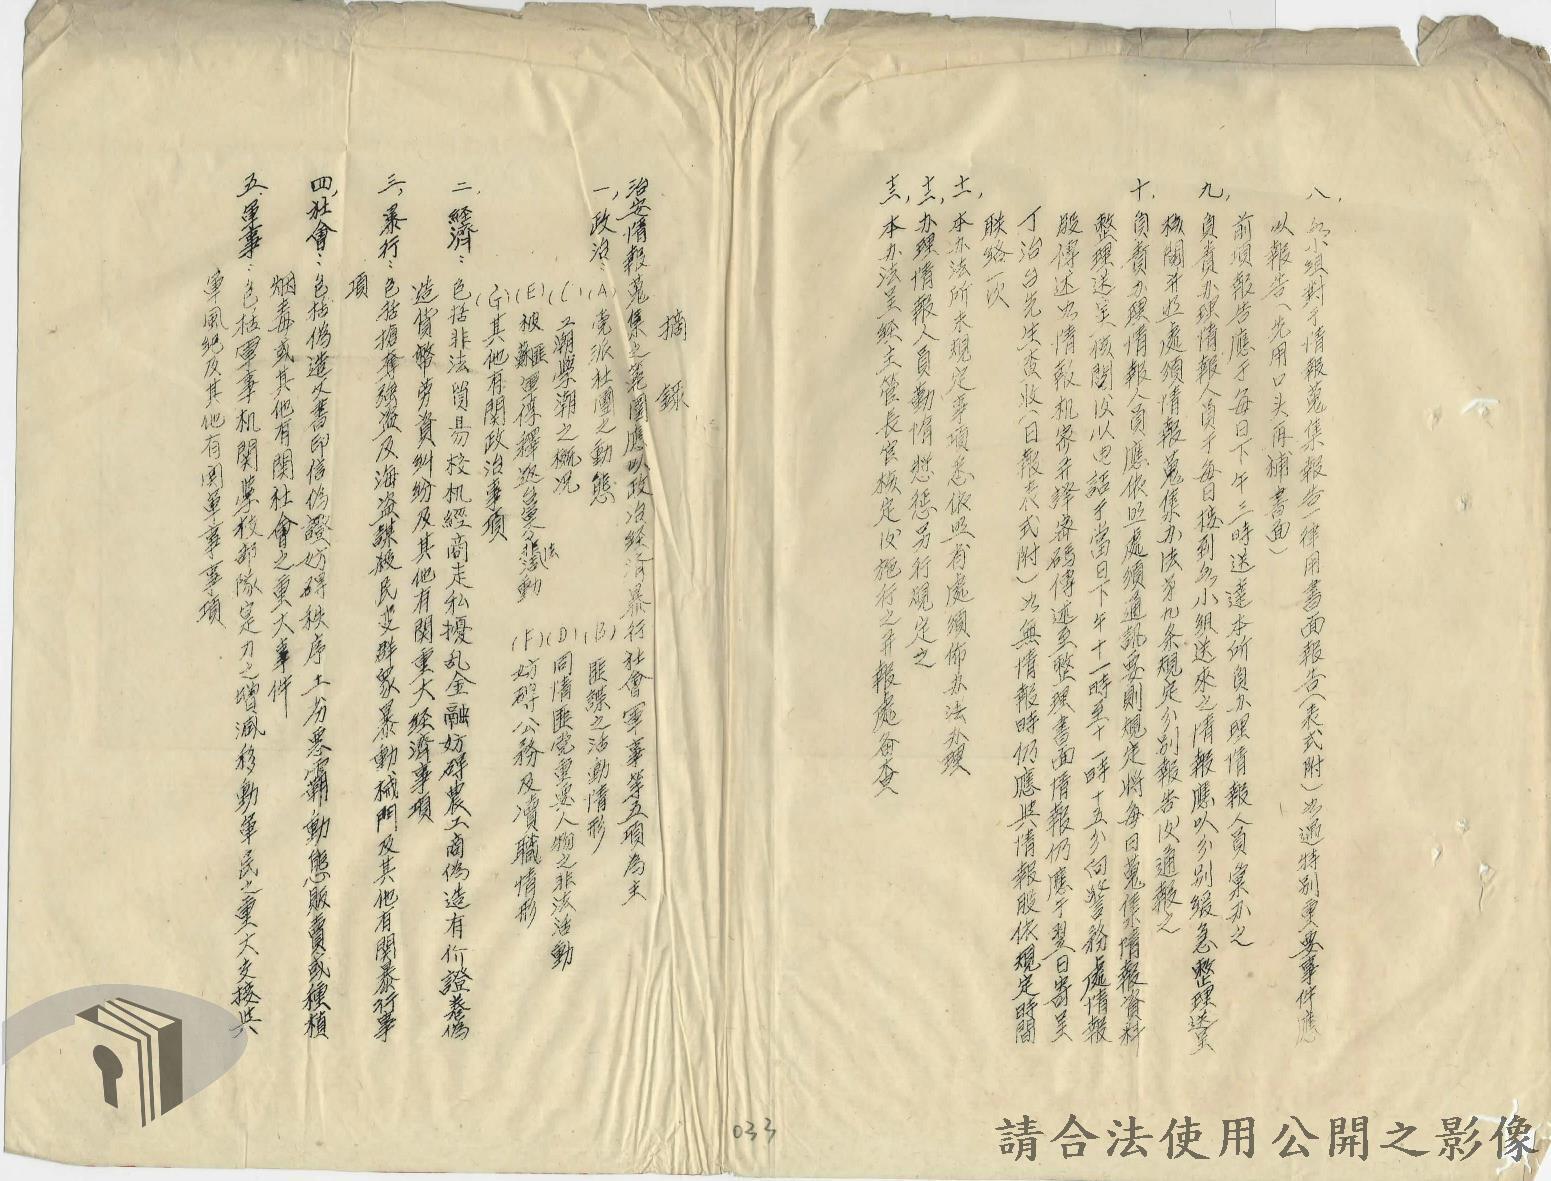 八、各小組對于情報蒐集報告一律用書面報告(表式附)如遇特別重要事件應
以報告(先用口头再補書面)
前項報告應于每日下午三時送達本所負办理情報人員彙办之
九、負責办理情報人員于每日接到各小組送來之情報應以分別緩急整理送呈
核閱并照處頒情報蒐集办法第九条規定分別報告後通報之
十、負責办理情報人員應依照處頒通訊要則規定將每日蒐集情報資料
整理送呈核閱後以电話于當日下午十一時至十一時十五分向警務處情報
股傳述如情報机密并譯密碼傳述至整理書面情報仍應于翌日寄呈
丁治台先生查收(日報表式附)如無情報時仍應與情報股依規定時間
联絡一次
十一、本办法所未規定事項悉依照省處頒佈办法办理
十二、办理情報人員勤惰獎懲另行規定之
十三、本办法呈經主管長官核定後施行之并報處备查
摘錄
治安情報蒐集之範圍應以政治經濟暴行社會軍事等五項為主
一、政治:(A)党派社團之動態 (B)匪諜之活動情形
(C)工潮學潮之概况 (D)同情匪党重要人物之非法活動
(E)被匪俘釋返台党之非法活動 (F)妨碍公務及瀆職情形
(G)其他有関政治事項
二、經濟:包括非法貿易投机經商走私擾乱金融妨碍農工商偽造有价證券偽
造貨幣勞資糾紛及其他有関重大經濟事項
三、暴行:包括搶奪強盗及海盗謀殺民变群眾暴動械鬥及其他有関暴行事
項
四、社會:包括偽造文書印信偽證妨碍秩序土劣惡霸動態販賣或種植
烟毒或其他有関社會之重大事件
五、軍事:包括軍事机関學校部隊実力之增減移動軍民之重大支援與
軍風紀及其他有関軍事事項
033
請合法使用公開之影像